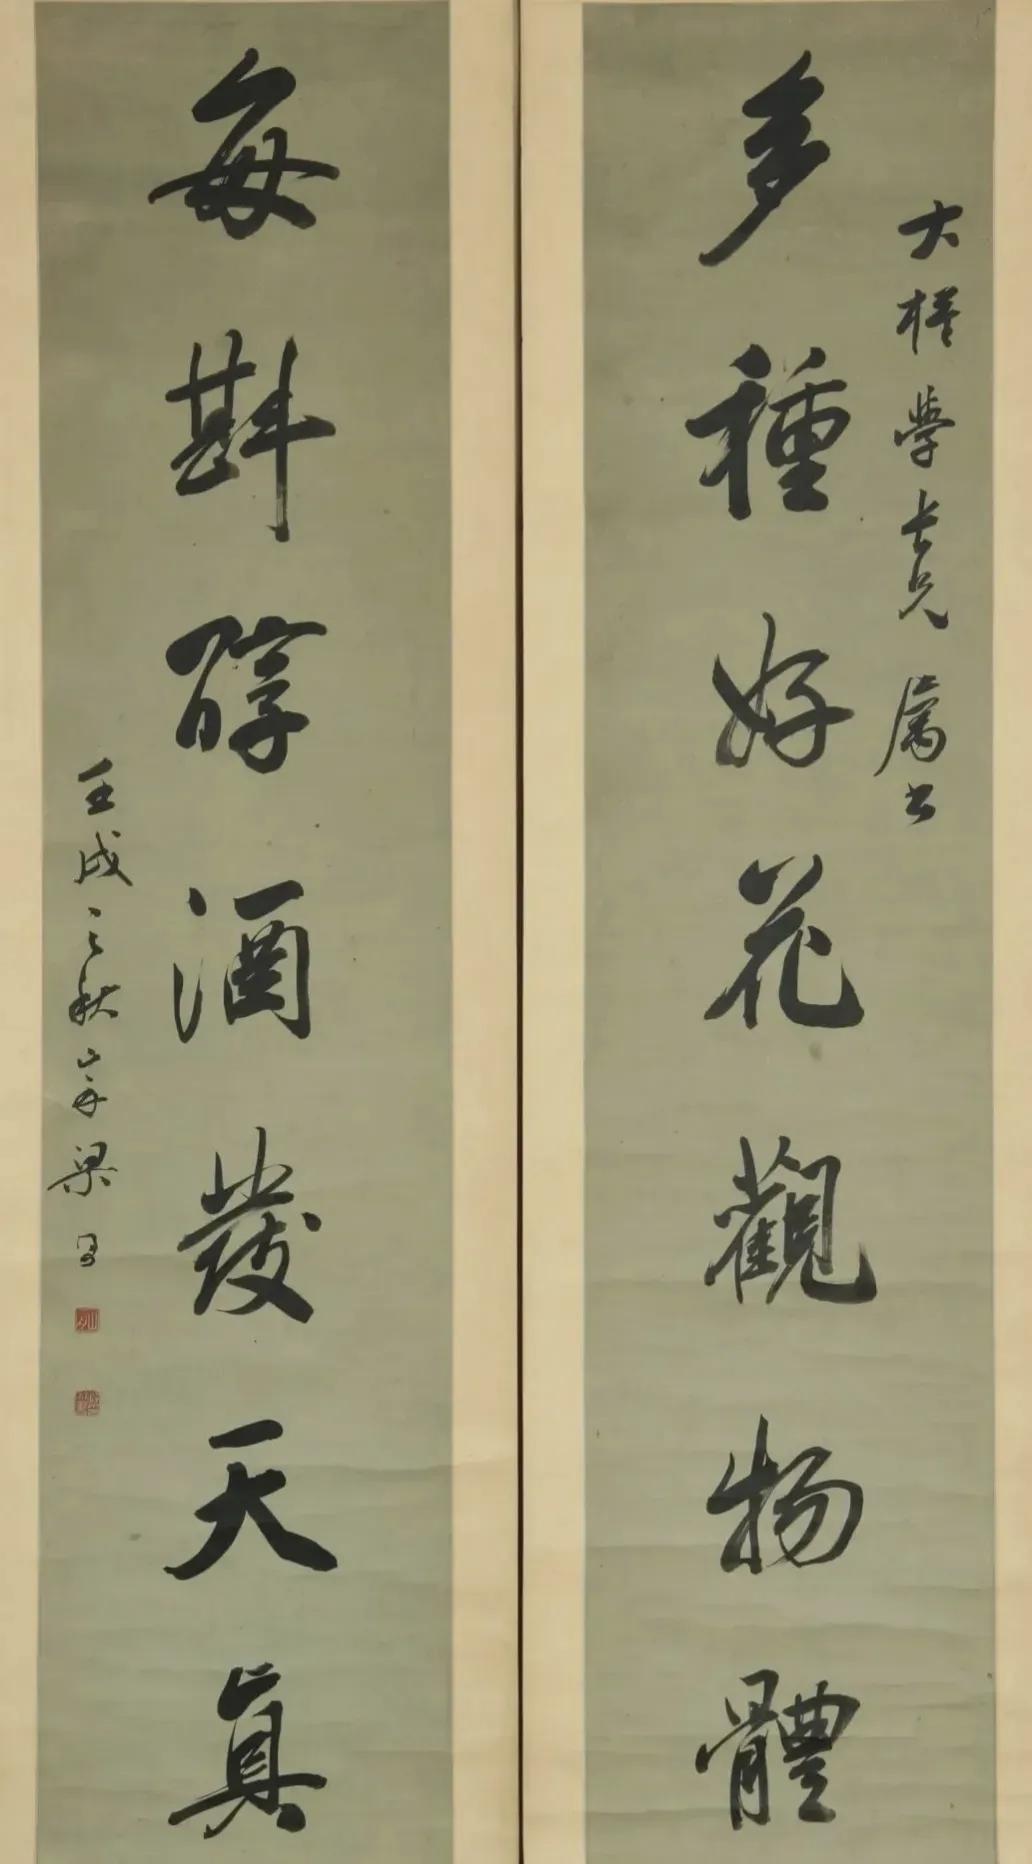 大楳學長兄屬書
多種好花觀物體
每斟醇酒發天真
壬戌之秋山舟梁同